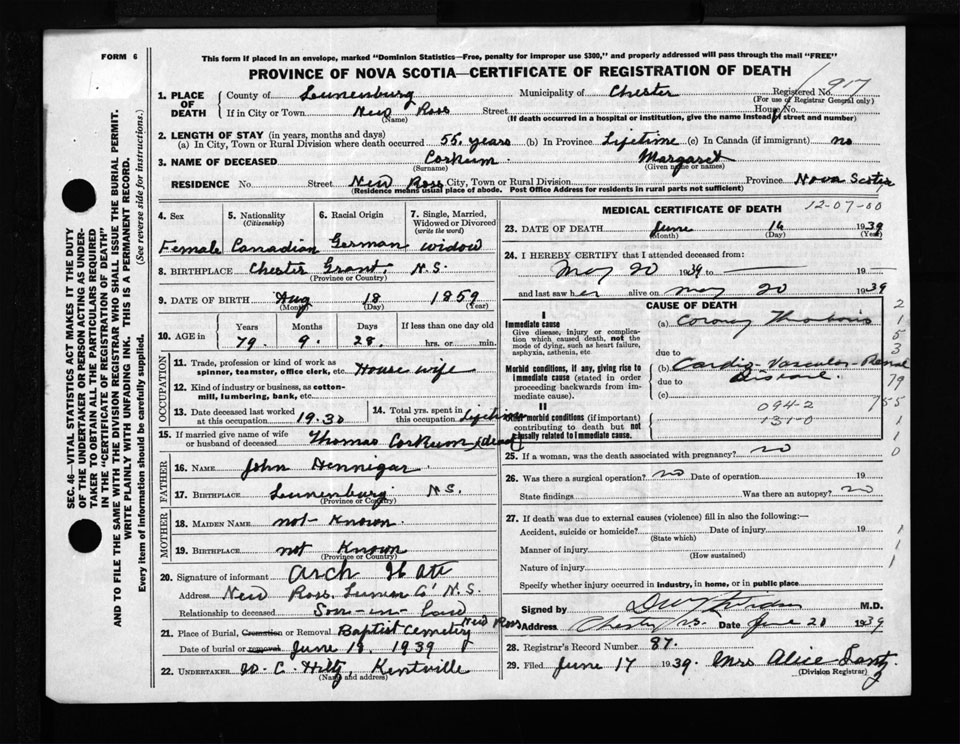 FORM 6
This form if placed in an envelope, marked "Dominion Statistics—Free, penalty for improper use $300," and properly addressed will pass through the mail "FREE"
PROVINCE OF NOVA SCOTIA—CERTIFICATE OF REGISTRATION OF DEATH
917
1. PLACE OF DEATH County of Lunenburg Municipality of Chester Registered No.
(For use of Registrar General only)
If in City or Town New Ross Street House No.
(Name) (If death occurred in a hospital or institution, give the name instead of street and number)
2. LENGTH OF STAY (in years, months and days)
(a) In City, Town or Rural Division where death occurred 55 years (b) In Province Lifetime (c) In Canada (if immigrant) no
3. NAME OF DECEASED Corkum Margaret
(Surname) (Given name or names)
RESIDENCE No. Street New Ross City, Town or Rural Division Province Nova Scotia
(Residence means usual place of abode. Post Office Address for residents in rural parts not sufficient)
4. Sex 5. Nationality 6. Racial Origin 7. Single, Married, Widowed or Divorced
(Citizenship) (write the word)
Female Canadian German widow
8. BIRTHPLACE Chester Grant, N.S.
(Province or Country)
9. DATE OF BIRTH Aug 18 1859
(Month) (Day) (Year)
10. AGE in Years Months Days If less than one day old
79. 9. 28. hrs. or min.
OCCUPATION
11. Trade, profession or kind of work as spinner, teamster, office clerk, etc. House wife
12. Kind of industry or business, as cotton-mill, lumbering, bank, etc.
13. Date deceased last worked at this occupation 1930 14. Total yrs. spent in this occupation Lifetime
15. If married give name of wife or husband of deceased Thomas Corkum (dead)
FATHER
16. NAME John Hennigar
17. BIRTHPLACE Lunenburg N.S.
(Province or Country)
MOTHER
18. MAIDEN NAME not Known
19. BIRTHPLACE not Known
(Province or Country)
20. Signature of informant Arch
Address New Ross Lunen Co N.S.
Relationship to deceased Son-in-law
21. Place of Burial, Cremation or Removal Baptist Cemetery New Ross
Date of burial or removal June 19, 1939
22. UNDERTAKER W. C. Hiltz, Kentville
(Name and address)
MEDICAL CERTIFICATE OF DEATH
12-07-00
23. DATE OF DEATH June 16 1939
(Month) (Day) (Year)
24. I HEREBY CERTIFY that I attended deceased from:
May 20 1939 to 19
and last saw her alive on May 20 1939
CAUSE OF DEATH
I
Immediate cause
Give disease, injury or complication which caused death, not the mode of dying, such as heart failure, asphyxia, asthenia, etc
(a) Corony Thrombosis
due to
Morbid conditions, if any, giving rise to immediate cause (stated in order proceeding backwards from immediate cause).
(b) Cardio Vascular-Renal Disease
due to
(c)
II
Other morbid conditions (if important) contributing to death but not causally related to immediate cause.
094-2
131-0
25. If a woman, was the death associated with pregnancy? no
26. Was there a surgical operation? no Date of operation 19
State findings Was there an autopsy? no
27. If death was due to external causes (violence) fill in also the following:—
Accident, suicide or homicide? Date of injury 19
(State which)
Manner of injury
(How sustained)
Nature of injury
Specify whether injury occurred in industry, in home, or in public place
Signed by M.D.
Address Chester N.S. Date June 20 1939
28. Registrar's Record Number 87.
29. Filed June 17 1939. Mrs Alice Lantz
(Division Registrar)
SEC. 46—VITAL STATISTICS ACT MAKES IT THE DUTY
OF THE UNDERTAKER OR PERSON ACTING AS UNDER-
TAKER TO OBTAIN ALL THE PARTICULARS REQUIRED
IN THE "CERTIFICATE OF REGISTRATION OF DEATH"
AND TO FILE THE SAME WITH THE DIVISION REGISTRAR WHO SHALL ISSUE THE BURIAL PERMIT.
WRITE PLAINLY WITH UNFADING INK. THIS IS A PERMANENT RECORD.
Every item of information should be carefully supplied. (See reverse side for instructions.)